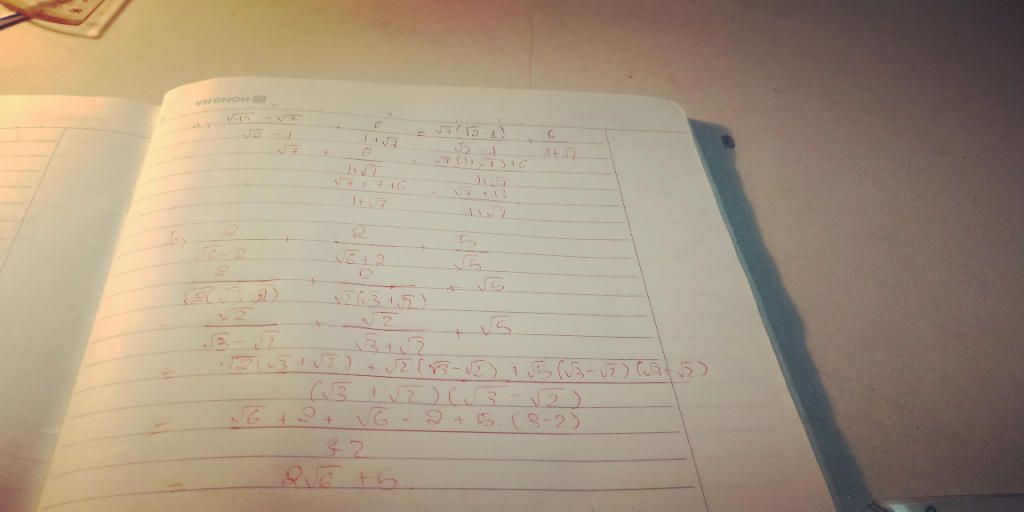 HONG HA
a, √14 - √7 / √2 - 1 + 6 / 1+√7 = √7(√2-1) / √2-1 + 6 / 1+√7
√7 + 6 / 1+√7 = √7(1+√7)+6 / 1+√7
= √7+7+6 / 1+√7 = √7+13 / 1+√7
b, 2 / √6-2 + 2 / √6+2 + 5 / √5
2 / √2(√3-2) + 2 / √2(√3+√2) + √5
√2 / √3-√2 + √2 / √3+√2 + √5
= √2(√3+√2) + √2(√3-√2) + √5(√3-√2)(√3-√2) / (√3+√2)(√3-√2)
= √6+2+√6-2+5.(3-2) / 3-2
= 2√6+5